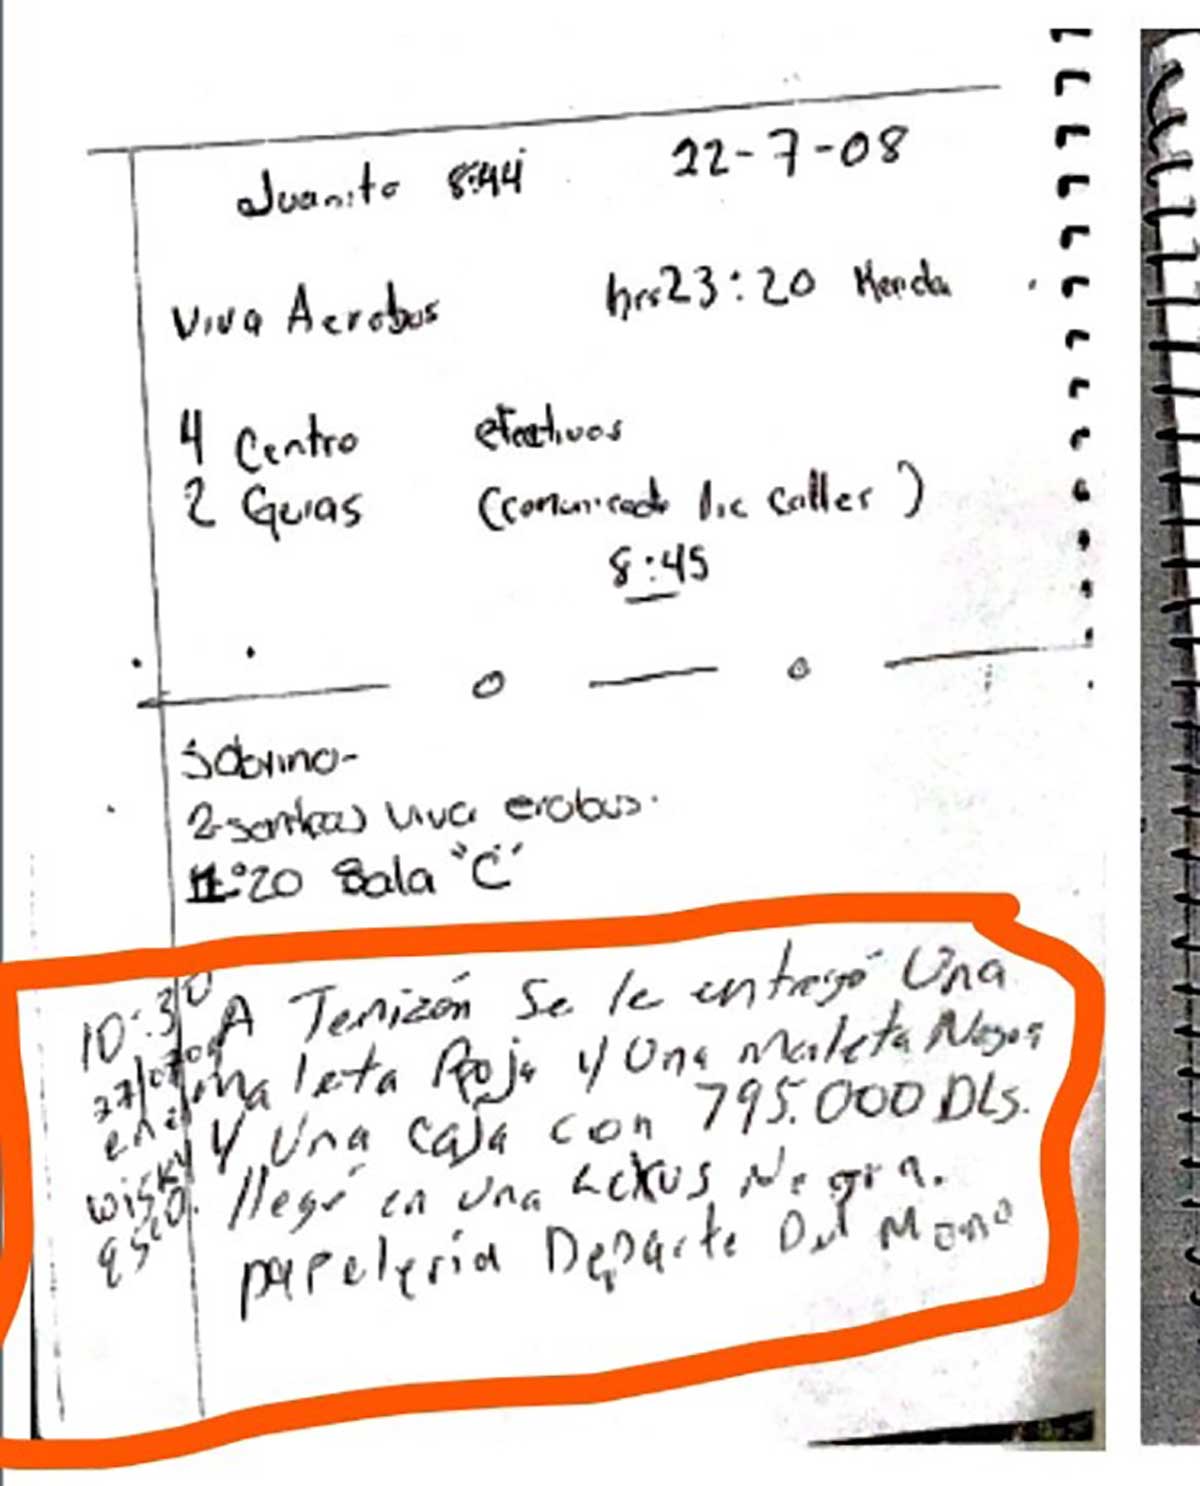 Juanito 8:44 22-7-08
Viva Aerobus hrs 23:20 Merida
4 Centro efectivos
2 Guias (comunicado lic caller)
8:45
Sobrino-
2 viva erobus.
11:20 Sala "C"
10:30 A Tenizón Se le entregó Una
27/07/08 maleta Roja y Una Maleta Negra
en el Y Una Caja con 795.000 DLS.
wisky llegó en una Lexus Negra.
papeleria Departe Del Mono